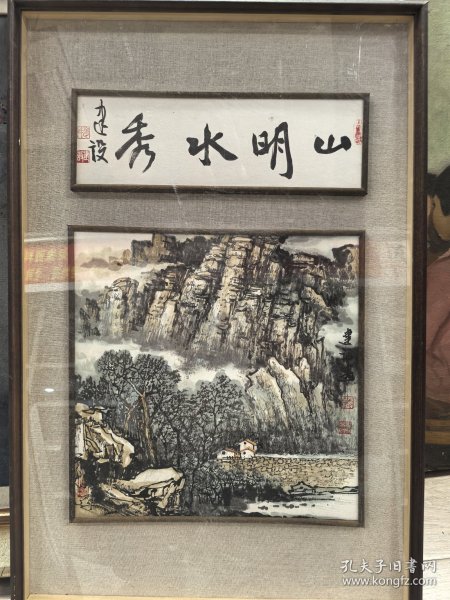 山明水秀
建设
孔夫子旧书网
www.kongfz.com